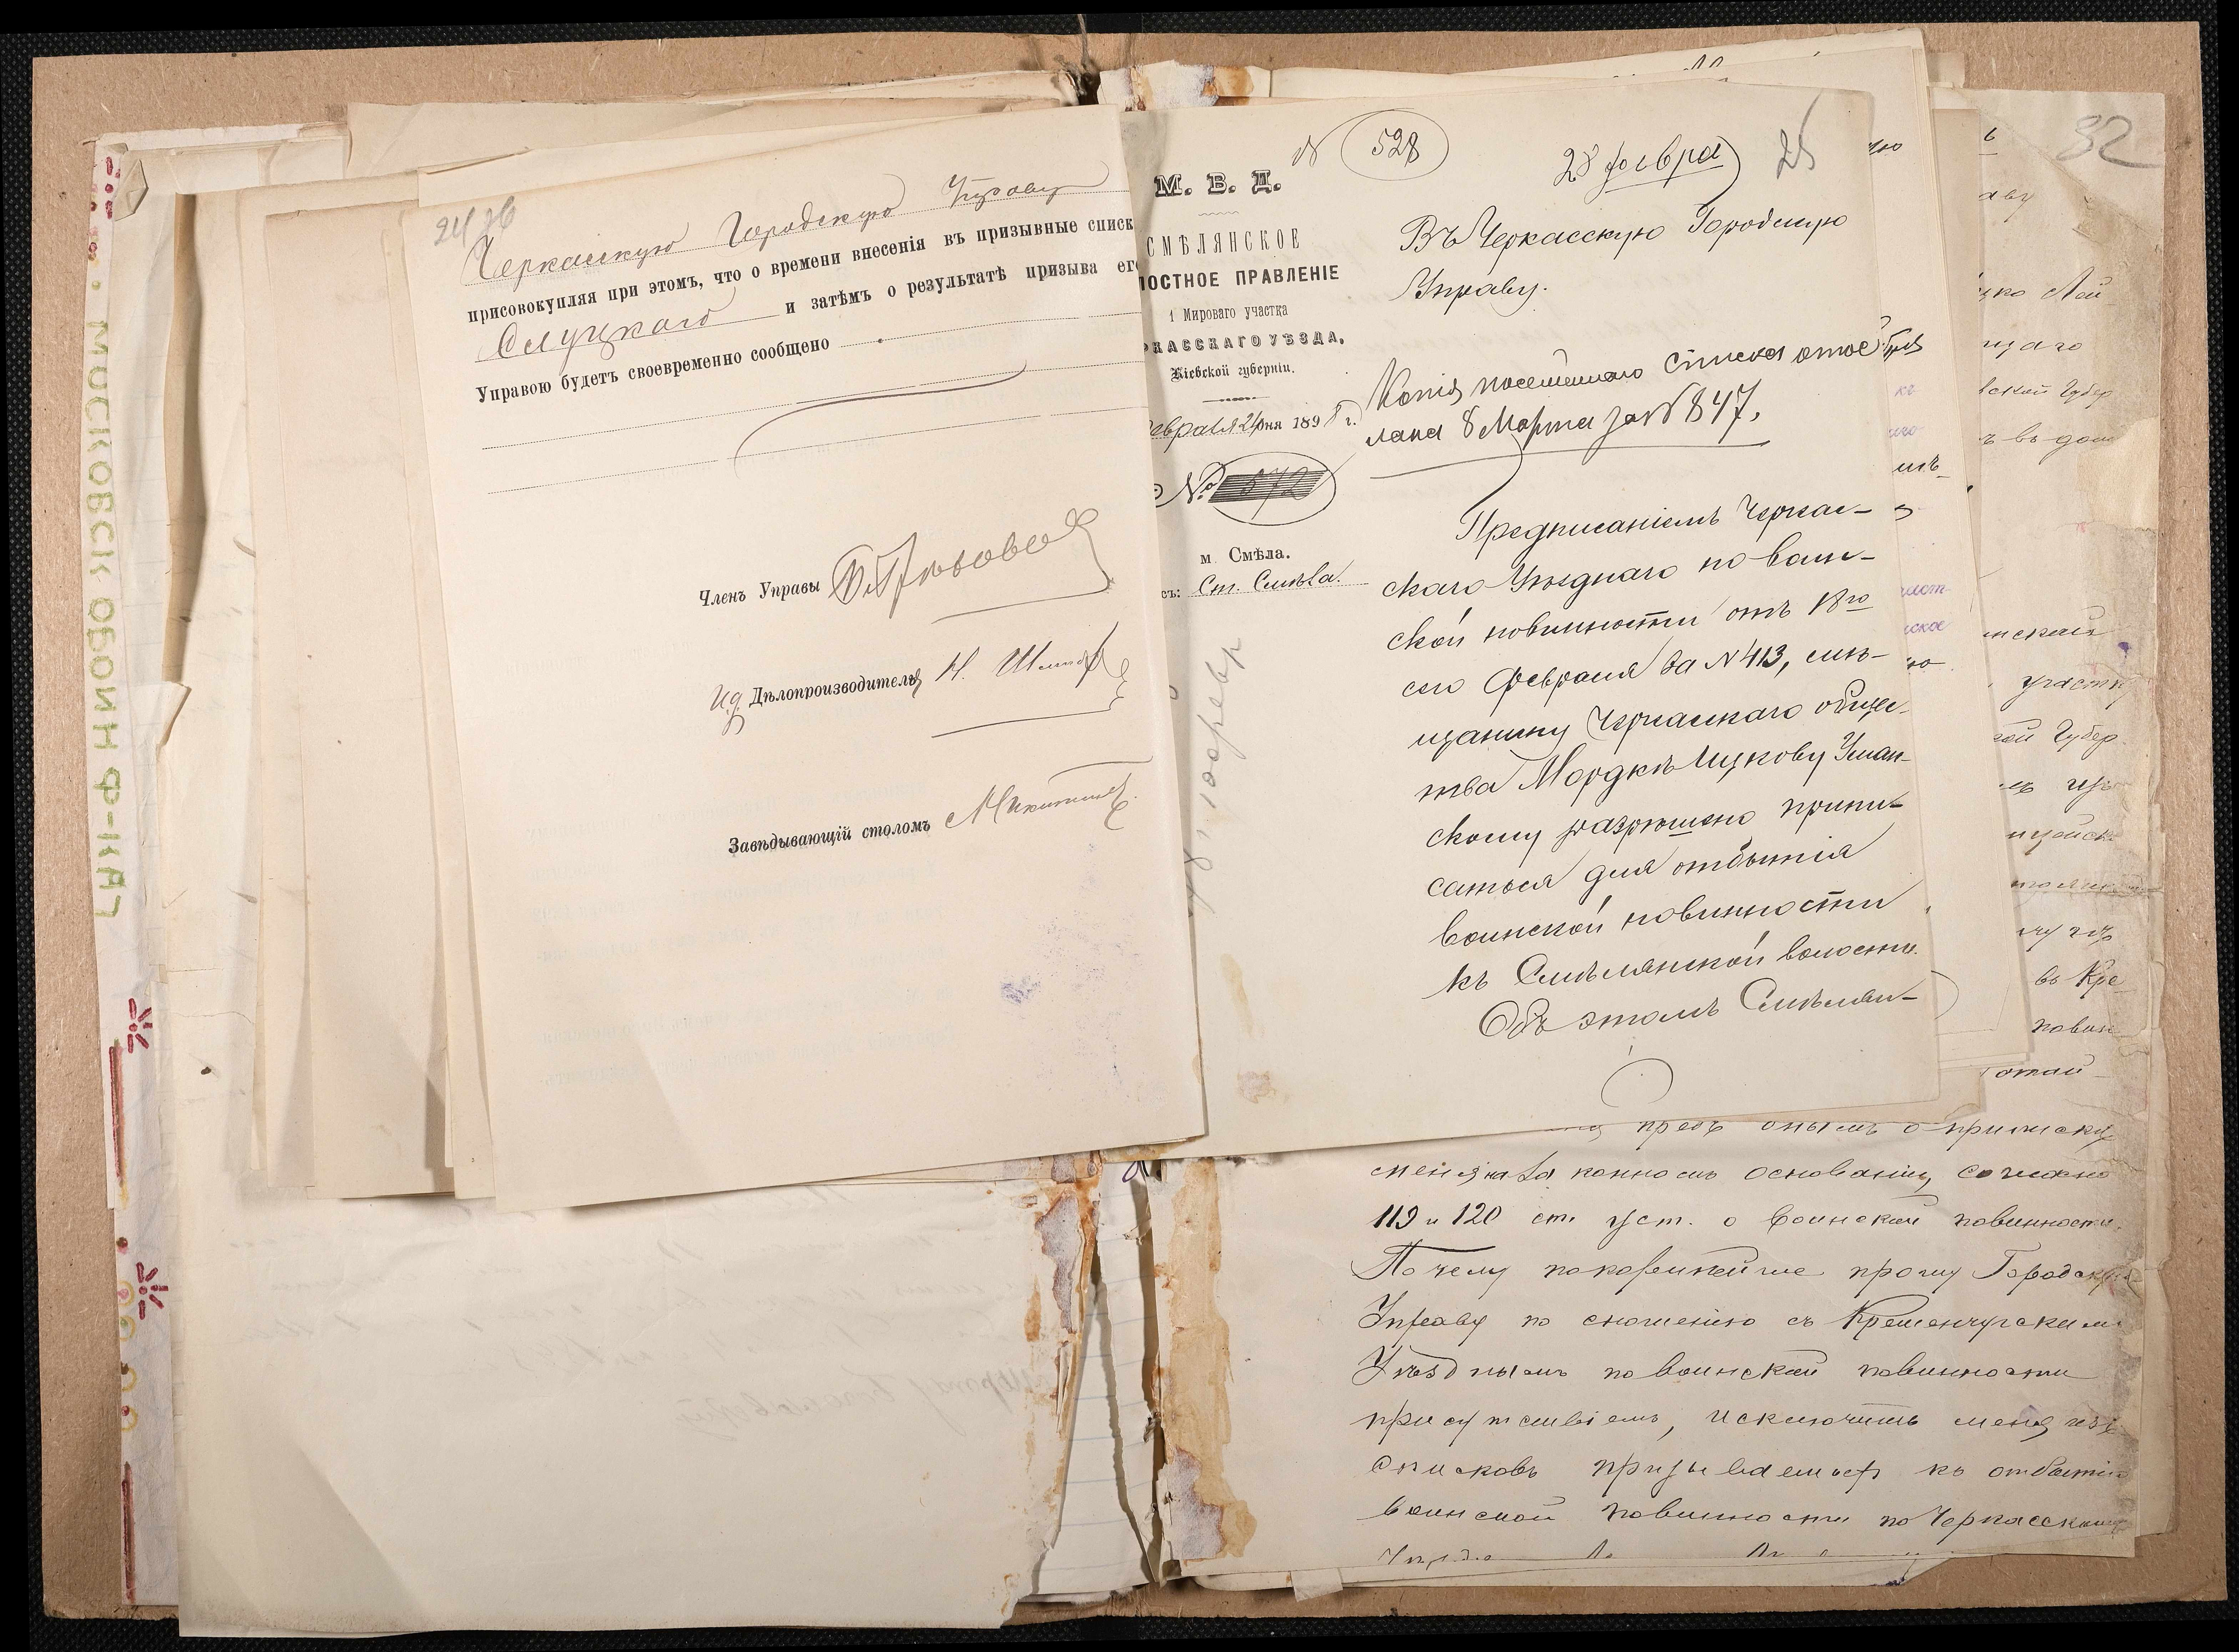 24 26
Черкасскую Городскую Управу
присовокупляя при этомъ, что о времени внесенія въ призывные списк
Слуцкаго и затѣмъ о результатѣ призыва его
Управою будетъ своевременно сообщено
Членъ Управы
И.д. Дѣлопроизводителя Н.
Завѣдывающій столомъ
МОСКОВСК ОВОИН Ф-ІКА
N 528
М. В. Д.
СМѢЛЯНСКОЕ
ЛОСТНОЕ ПРАВЛЕНІЕ
1 Мироваго участка
РКАССКАГО УѢЗДА,
Кіевской губерніи.
Февраля 24 дня 1898 г.
№ 572
м. Смѣла.
съ: Ст. Смѣла.
28 февра 25
Въ Черкасскую Городскую
Управу.
Копія посемейнаго списка отос
лана 8 Марта за N 847.
Предписаніемъ Черкас-
скаго Уѣзднаго по воин-
ской повинности отъ 18го
сего Февраля за N 413, мѣ-
щанину Черкасскаго общес-
тва Мордкѣ Ицкову Уман-
скому разрѣшено припи-
саться для отбытія
воинской повинности
къ Смѣлянской волости.
Объ этомъ Смѣлян-
32
аву
щаго
вской Губер
ъ въ дом
участку
кой Губер.
въ Кре
повин
предъ онымъ о приписку
меня на законномъ основаніи, согласно
119 и 120 ст. уст. о воинской повинности.
Почему покорнѣйше прошу Городскую
Управу по сношенію съ Кременчугскимъ
Уѣзднымъ по воинской повинности
присутствіемъ, исключить меня изъ
списковъ призываемыхъ къ отбытію
воинской повинности по Черкасскому